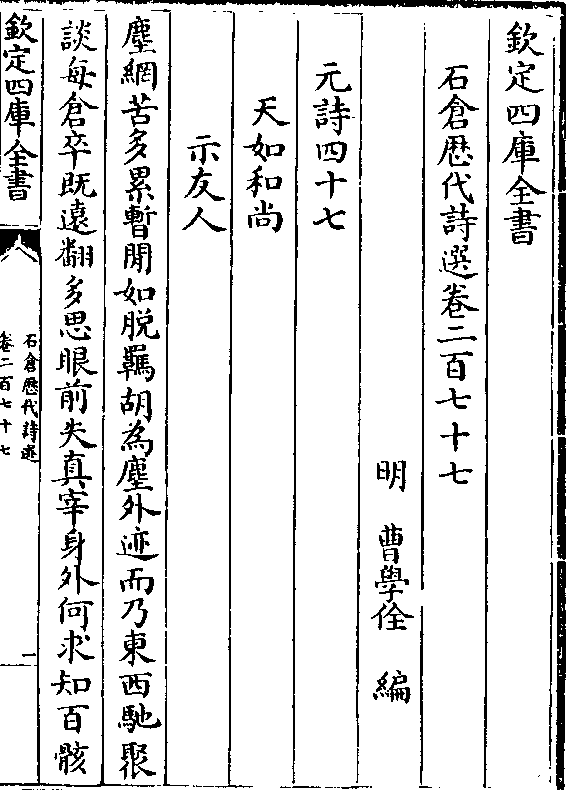 欽定四庫全書
石倉歴代詩選卷二百七十七
明 曹學佺 編
元詩四十七
天如和尚
示友人
塵網苦多累暫閒如脱羈胡為塵外迹而乃東西馳聚
談每倉卒既遠翻多思眼前失真宰身外何求知百骸
欽定四庫全書
石倉歴代詩選
卷二百七十七
一